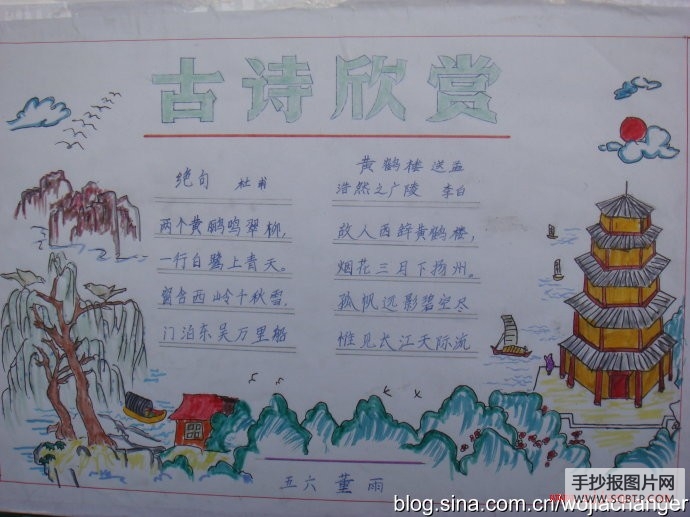 古诗欣赏
绝句 杜甫
两个黄鹂鸣翠柳,
一行白鹭上青天。
窗含西岭千秋雪,
门泊东吴万里船
黄鹤楼送孟
浩然之广陵 李白
故人西辞黄鹤楼,
烟花三月下扬州。
孤帆远影碧空尽
惟见长江天际流
五六 董雨
手抄报图片网
WWW.SCBTP.COM
blog.sina.com.cn/wojiachanger